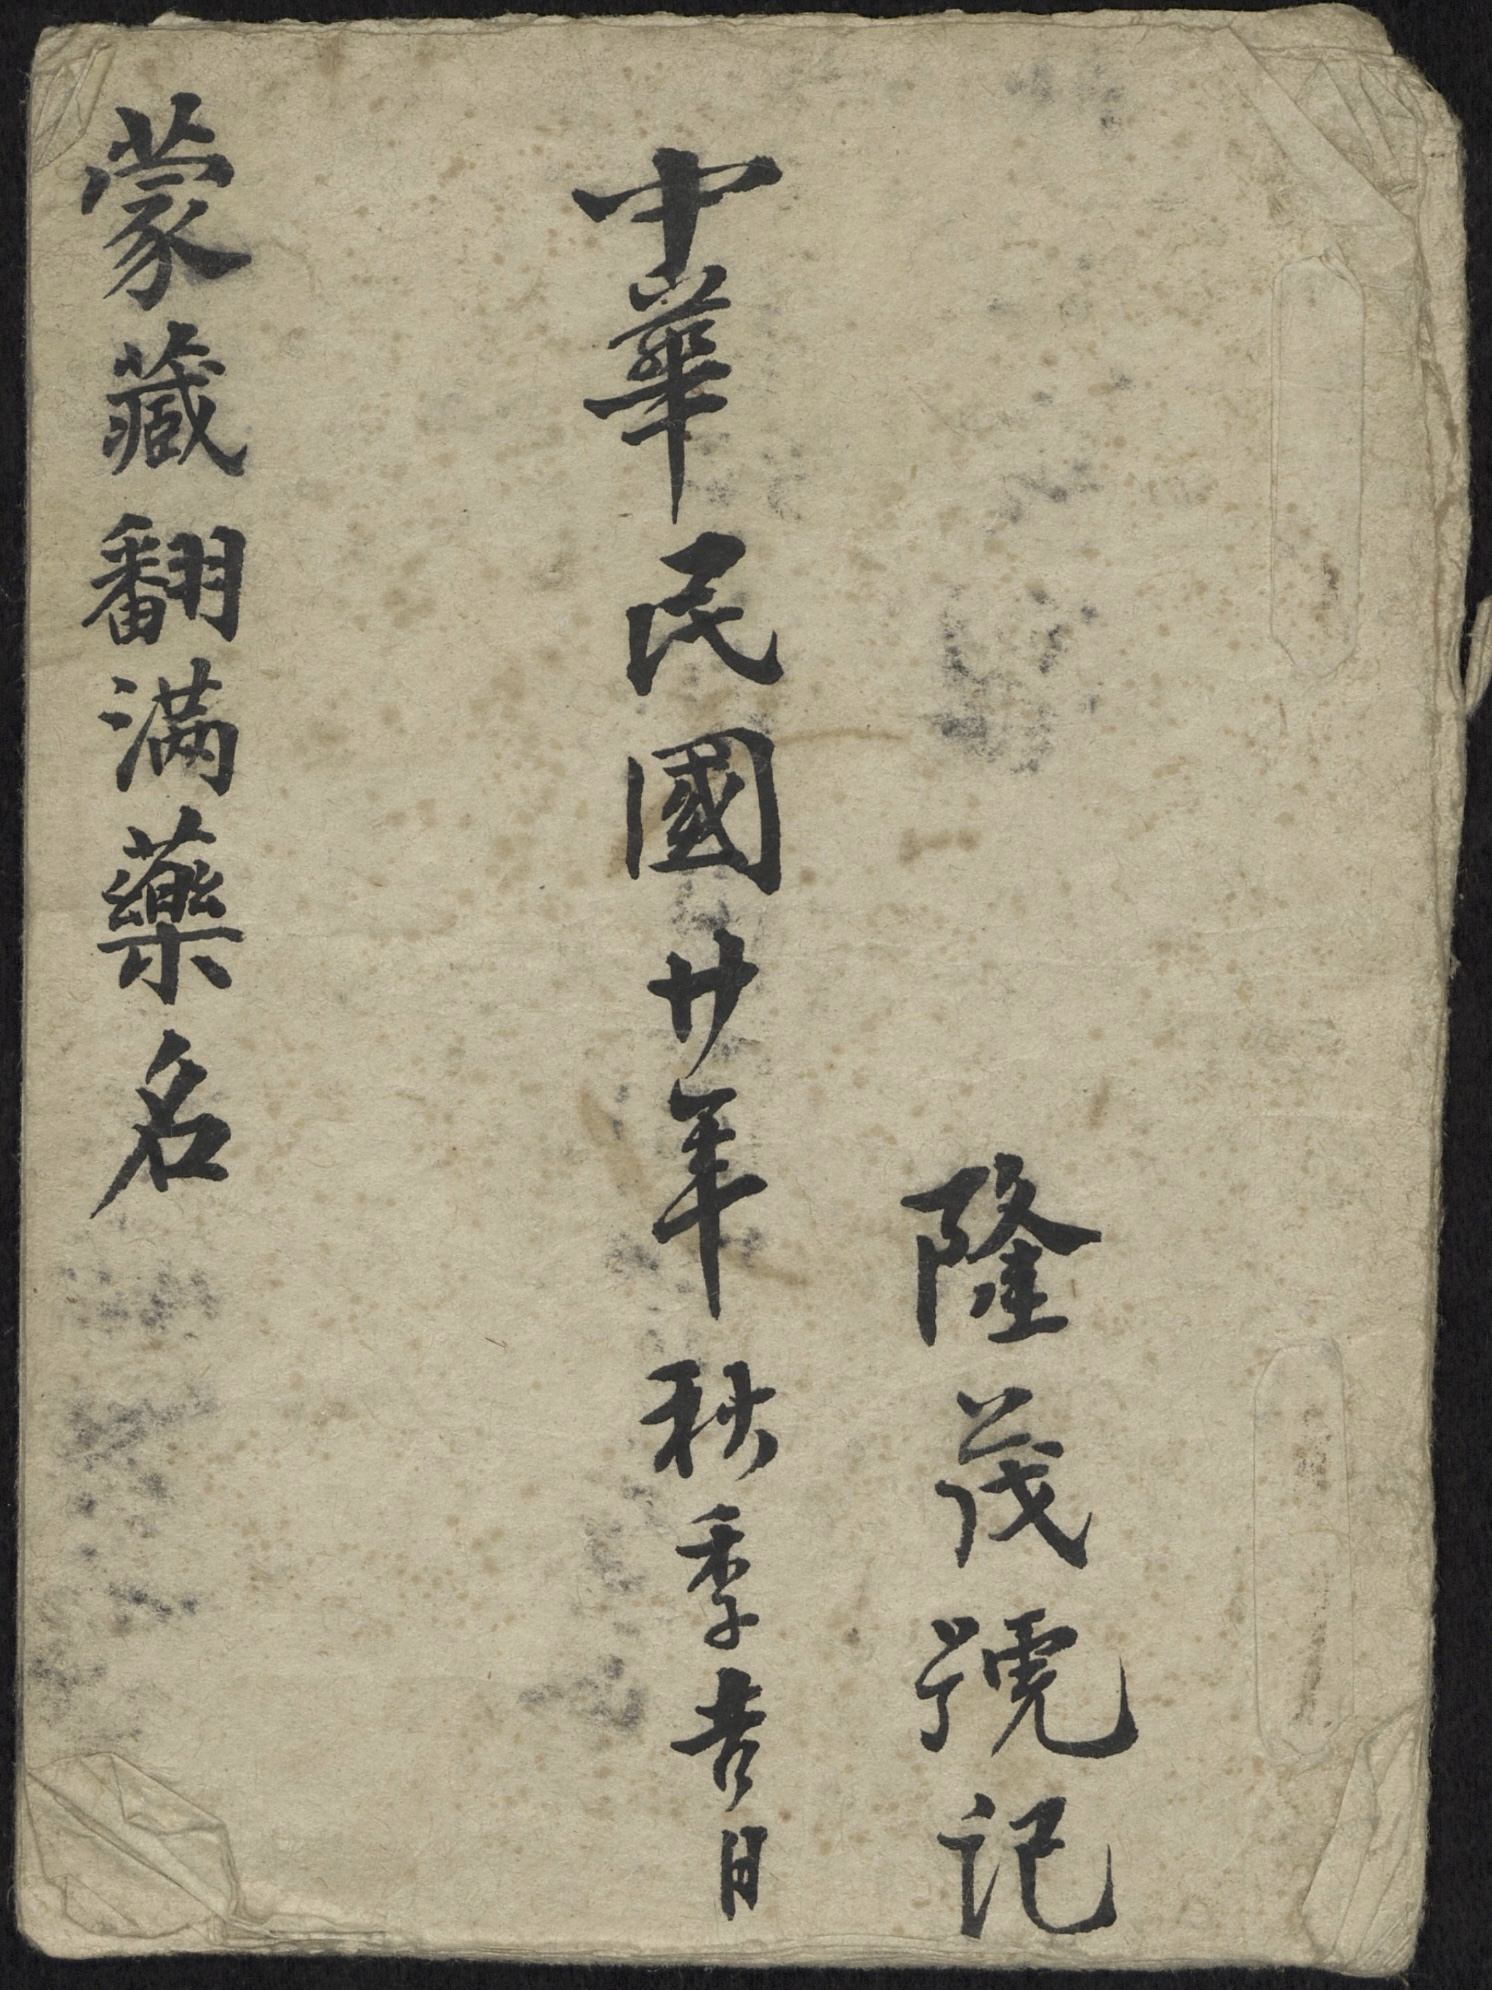 隆茂號記
中華民國廿年秋季吉日
蒙藏翻滿藥名